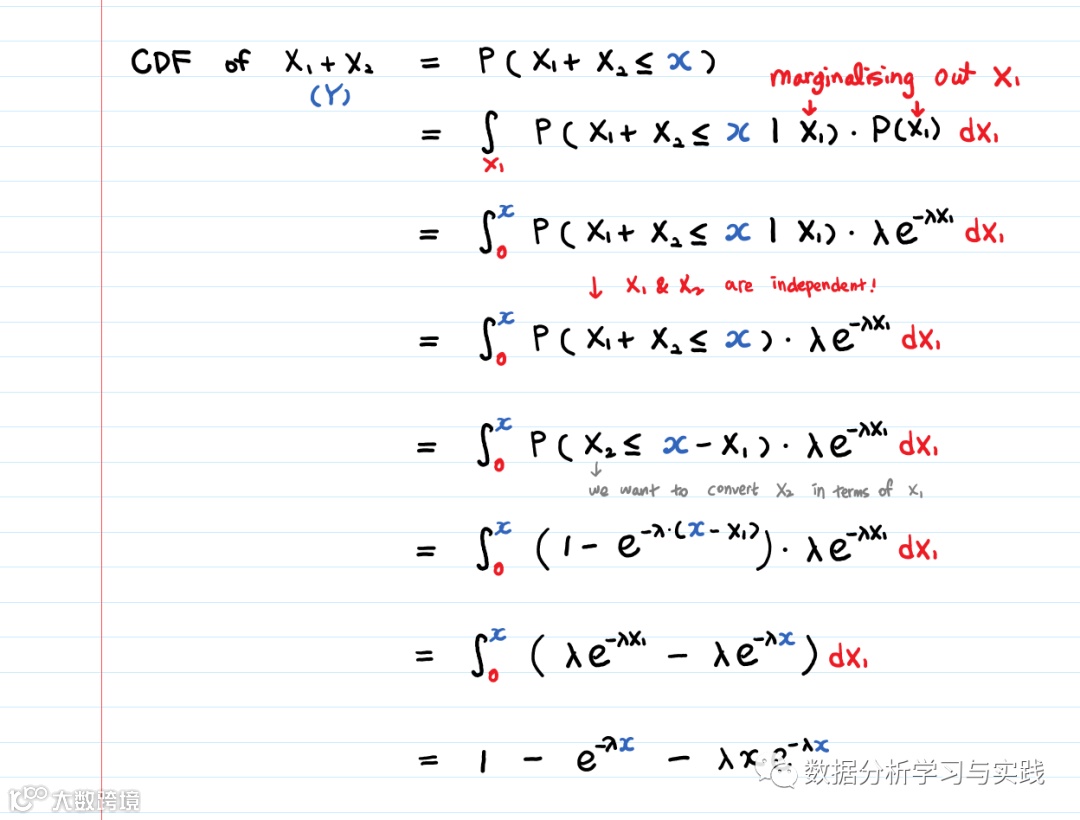 CDF of X₁ + X₂ = P( X₁ + X₂ ≤ x )
(Y)
marginalising out X₁
↓ ↓
= ∫_X₁ P( X₁ + X₂ ≤ x | X₁) · P(X₁) dx₁
= ∫₀ˣ P( X₁ + X₂ ≤ x | X₁) · λe^(-λX₁) dx₁
↓ X₁ & X₂ are independent!
= ∫₀ˣ P( X₁ + X₂ ≤ x ) · λe^(-λX₁) dx₁
= ∫₀ˣ P( X₂ ≤ x - X₁ ) · λe^(-λX₁) dx₁
↓
we want to convert X₂ in terms of X₁
= ∫₀ˣ (1 - e^(-λ·(x - X₁))) · λe^(-λX₁) dx₁
= ∫₀ˣ ( λe^(-λX₁) - λe^(-λx) ) dx₁
= 1 - e^(-λx) - λxe^(-λx)
数据分析学习与实践
大数跨境